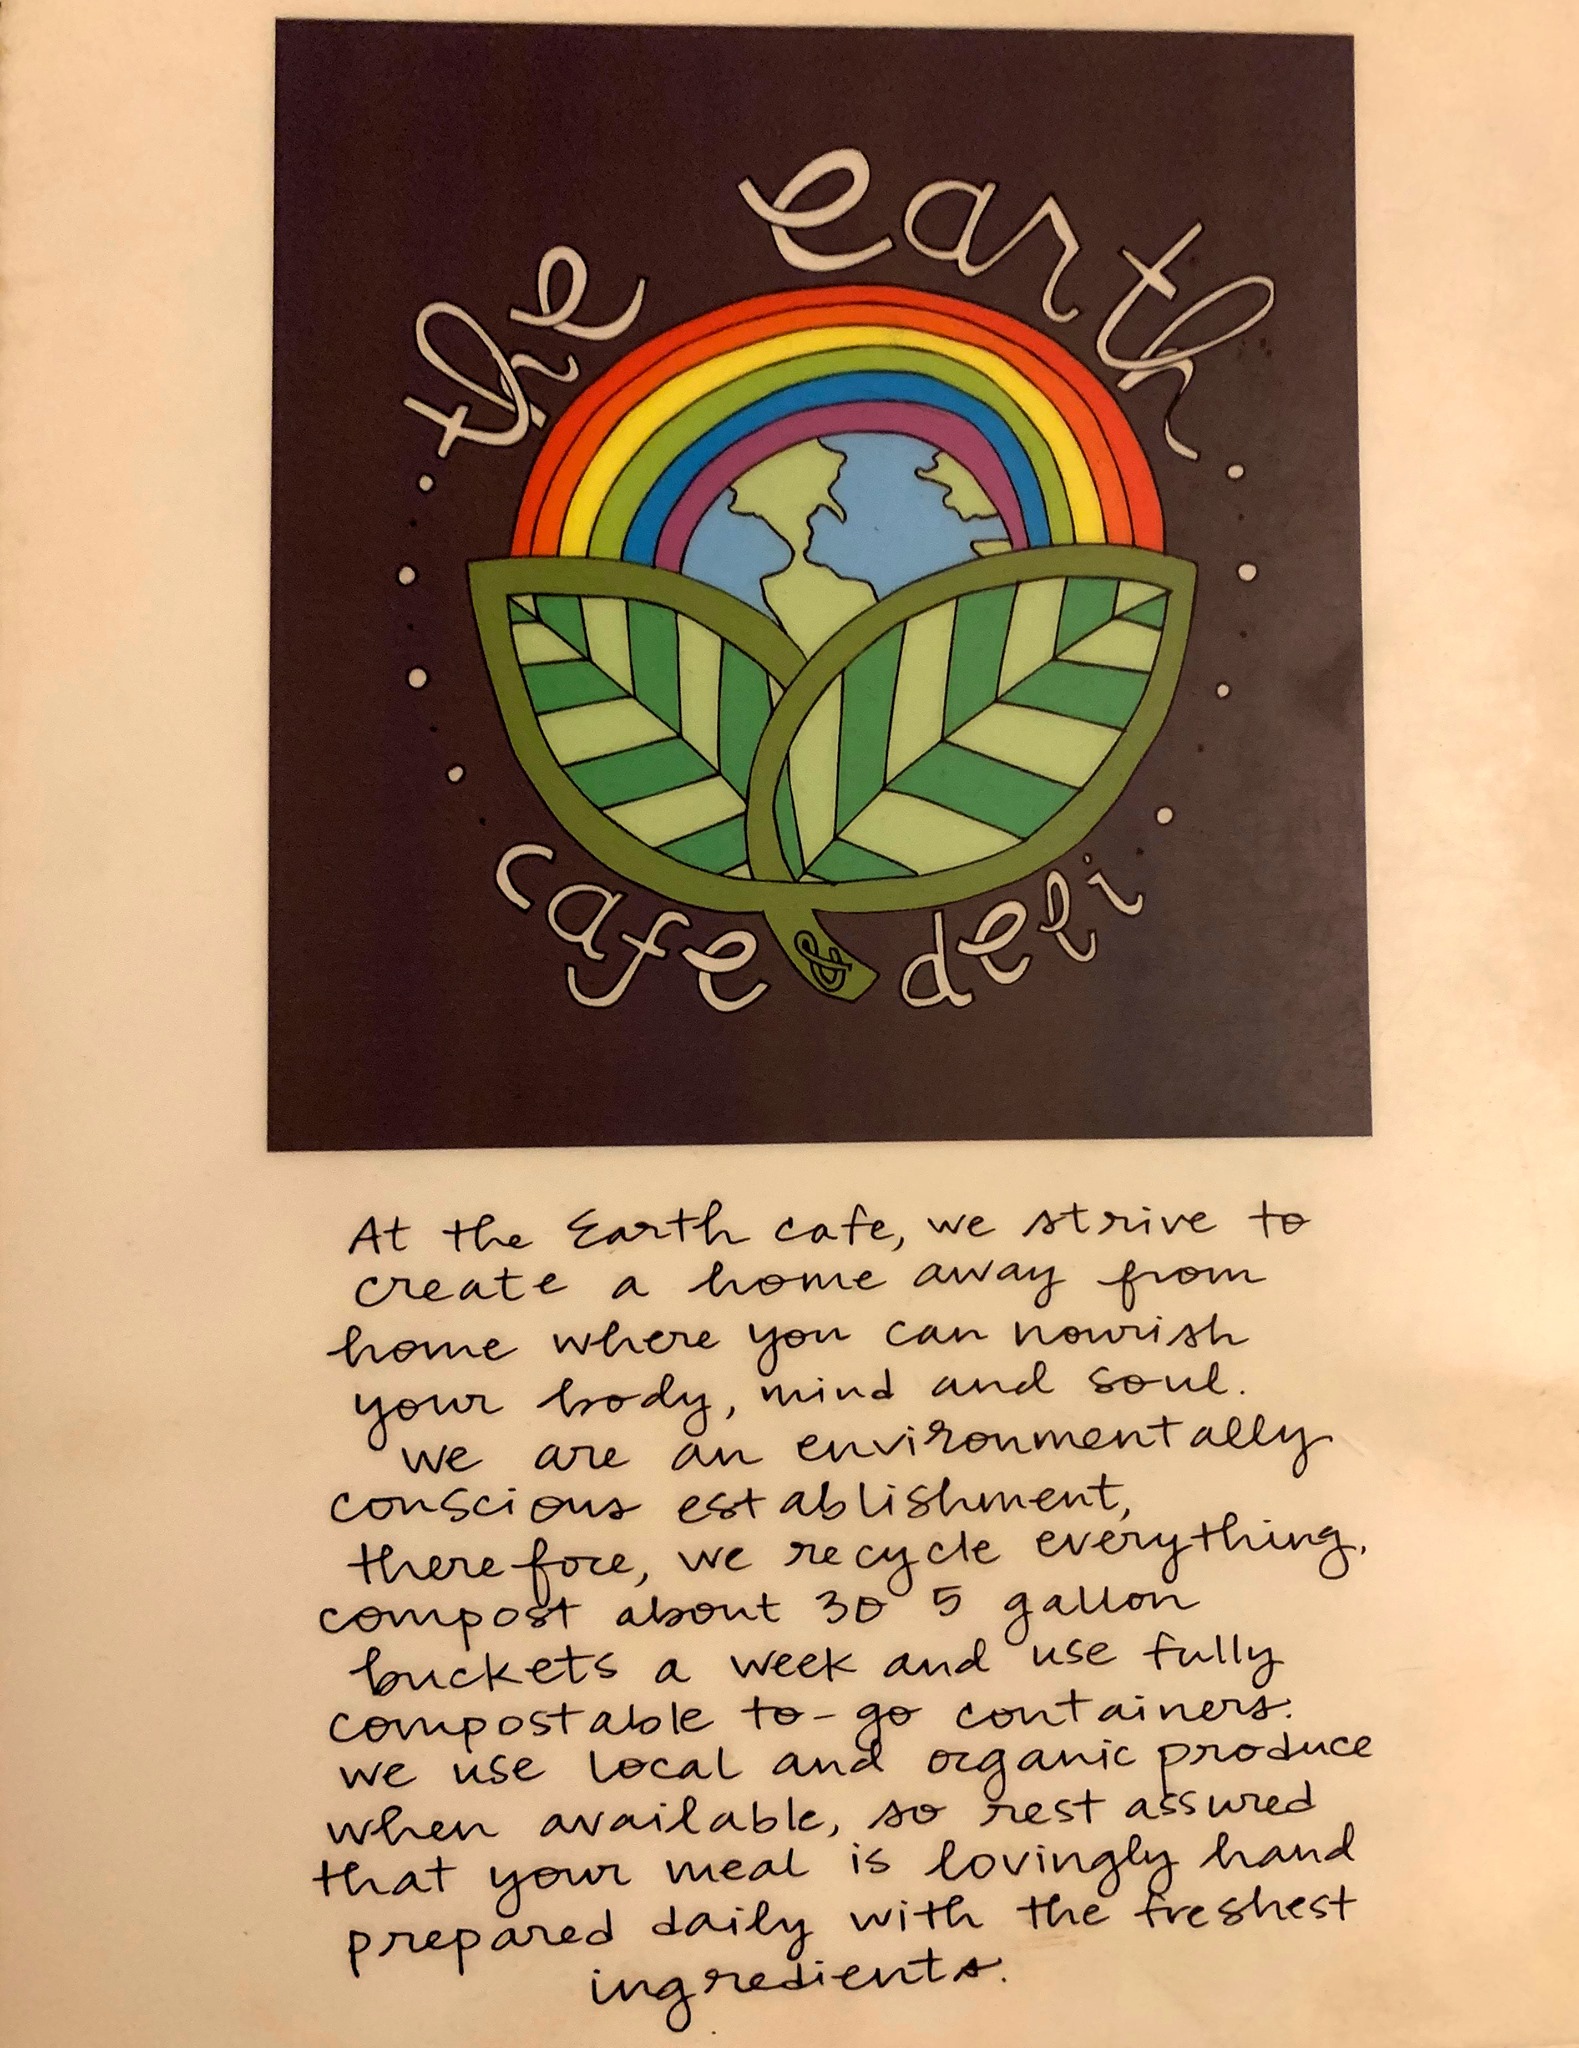 the earth
cafe & deli
At the Earth cafe, we strive to
create a home away from
home where you can nourish
your body, mind and soul.
we are an environmentally
conscious establishment,
therefore, we recycle everything,
compost about 30 5 gallon
buckets a week and use fully
compostable to-go containers.
we use local and organic produce
when available, so rest assured
that your meal is lovingly hand
prepared daily with the freshest
ingredients.